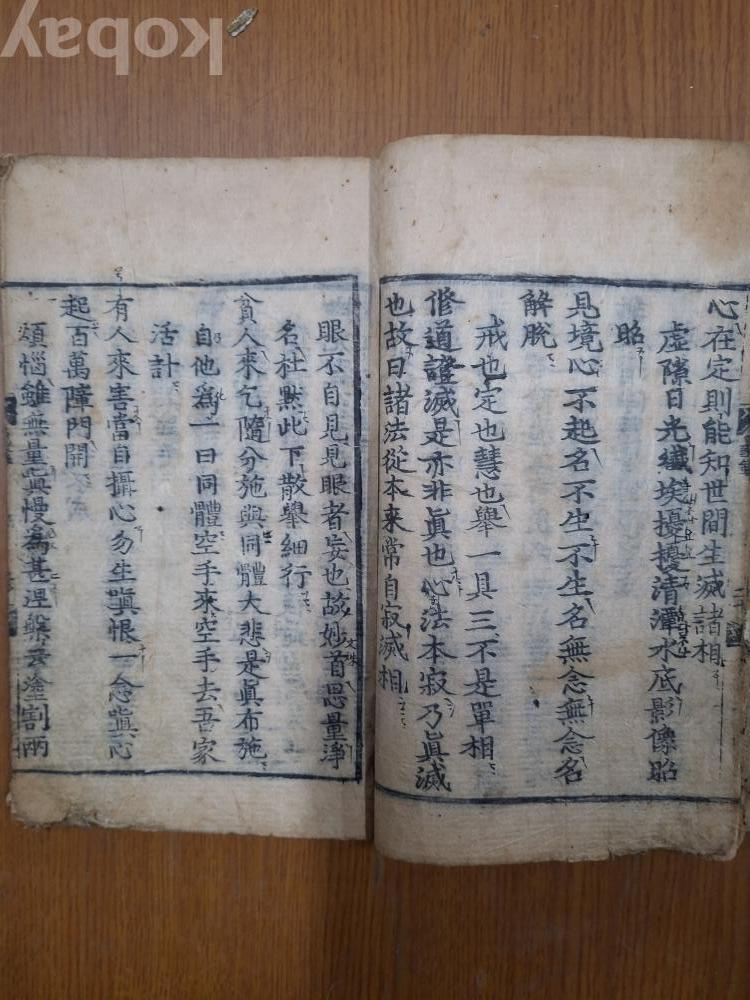 心在定則能知世間生滅諸相
虛隙日光纖埃擾擾清潭水底影像昭
昭
見境心不起名不生不生名無念無念名
解脫
戒也定也慧也舉一具三不是單相
修道證滅是亦非眞也心法本寂乃眞滅
也故曰諸法從本來常自寂滅相
眼不自見見眼者妄也故妙首思量淨
名杜默此下散舉細行
貧人來乞隨分施與同體大悲是眞布施
自他爲一曰同體空手來空手去吾家
活計
有人來害當自攝心勿生嗔恨一念嗔心
起百萬障門開
煩惱雖無量嗔慢爲甚涅槃云塗割兩
文殊
kobay